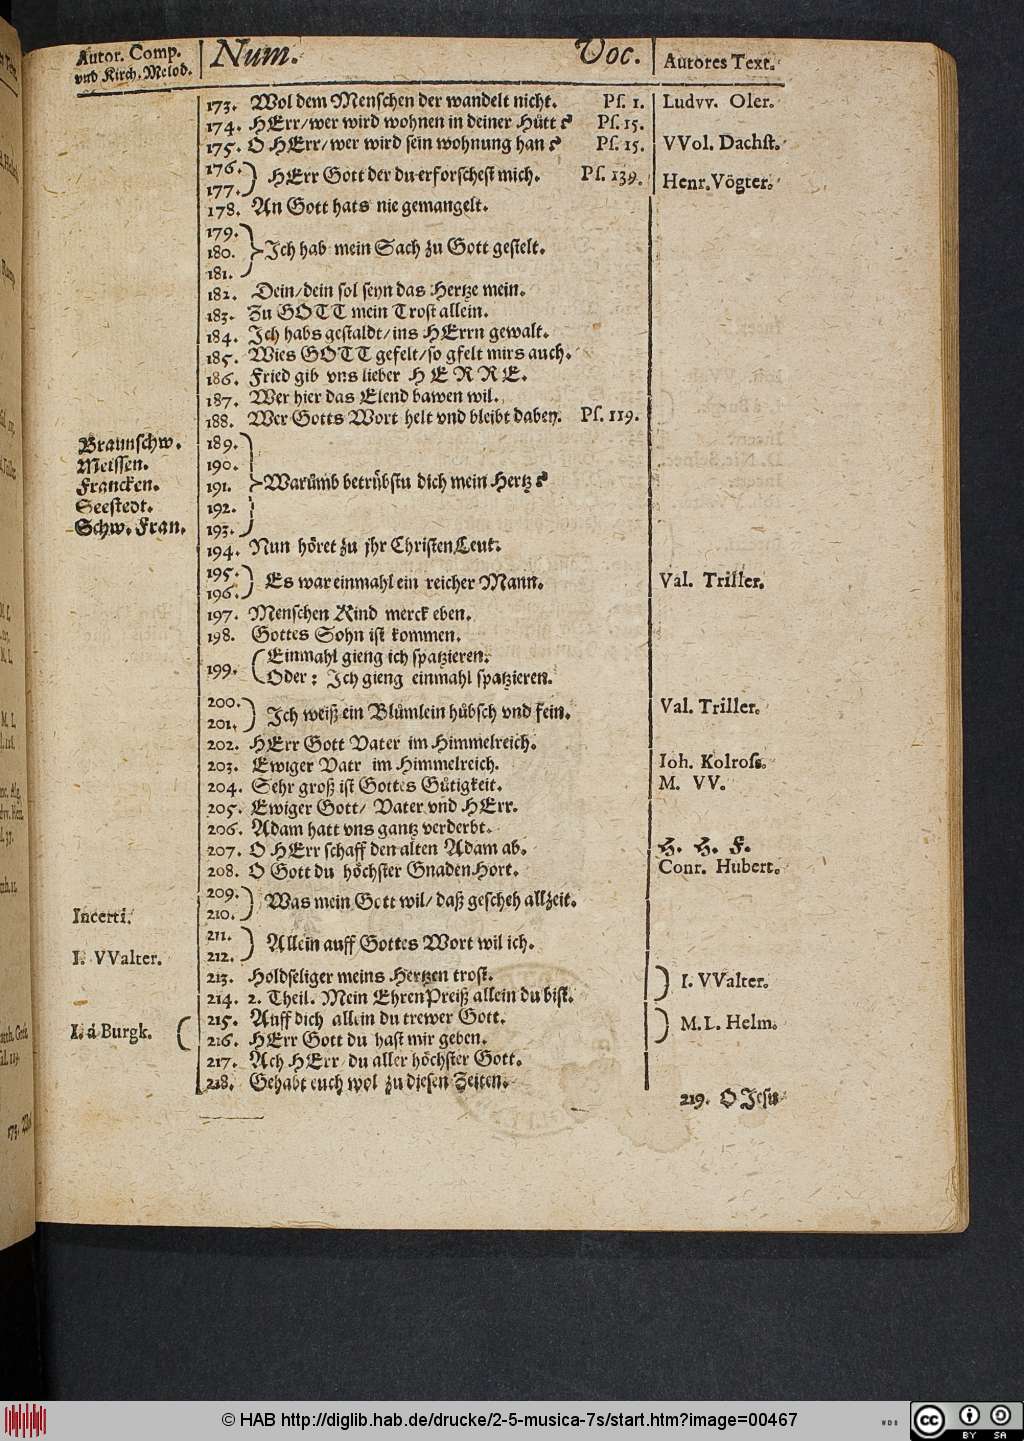 Autor. Comp.
vnd Kirch. Melod.
Num.
Voc.
Autores Text.
173. Wol dem Menschen der wandelt nicht. Ps. 1. Ludvv. Oler.
174. HErr/wer wird wohnen in deiner Hütt? Ps. 15.
175. O HErr/wer wird sein wohnung han? Ps. 15. VVol. Dachst.
176.
177. HErr Gott der du erforschest mich. Ps. 139. Henr. Vögter.
178. An Gott hats nie gemangelt.
179.
180. Ich hab mein Sach zu Gott gestelt.
181.
182. Dein/dein sol seyn das Hertze mein.
183. Zu GOTT mein Trost allein.
184. Ich habs gestaldt/ins HErrn gewalt.
185. Wies GOTT gefelt/so gfelt mirs auch.
186. Fried gib vns lieber HERRE.
187. Wer hier das Elend bawen wil.
188. Wer Gotts Wort helt vnd bleibt dabey. Ps. 119.
Braunschw. 189.
Meissen. 190.
Francken. 191. Warümb betrübstu dich mein Hertz?
Seestedt. 192.
Schw. Fran. 193.
194. Nun höret zu jhr Christen Leut.
195.
196. Es war einmahl ein reicher Mann. Val. Triller.
197. Menschen Kind merck eben.
198. Gottes Sohn ist kommen.
199. Einmahl gieng ich spatzieren.
Oder: Ich gieng einmahl spatzieren.
200.
201. Ich weiß ein Blümlein hübsch vnd fein. Val. Triller.
202. HErr Gott Vater im Himmelreich.
203. Ewiger Vatr im Himmelreich. Ioh. Kolross.
204. Sehr groß ist Gottes Gütigkeit. M. VV.
205. Ewiger Gott/ Vater vnd HErr.
206. Adam hatt vns gantz verderbt.
207. O HErr schaff den alten Adam ab. H. H. F.
208. O Gott du höchster Gnaden Hort. Conr. Hubert.
209. Was mein Gott wil/ daß gescheh allzeit.
Incerti. 210.
211. Allein auff Gottes Wort wil ich.
I. VValter. 212.
213. Holdseliger meins Hertzen trost. I. VValter.
214. 2. Theil. Mein Ehren Preiß allein du bist.
I. á Burgk. 215. Auff dich allein du trewer Gott. M. L. Helm.
216. HErr Gott du hast mir geben.
217. Ach HErr du aller höchster Gott.
218. Gehabt euch wol zu diesen Zeiten.
219. O Jesu
© HAB http://diglib.hab.de/drucke/2-5-musica-7s/start.htm?image=00467
WDB
cc BY SA